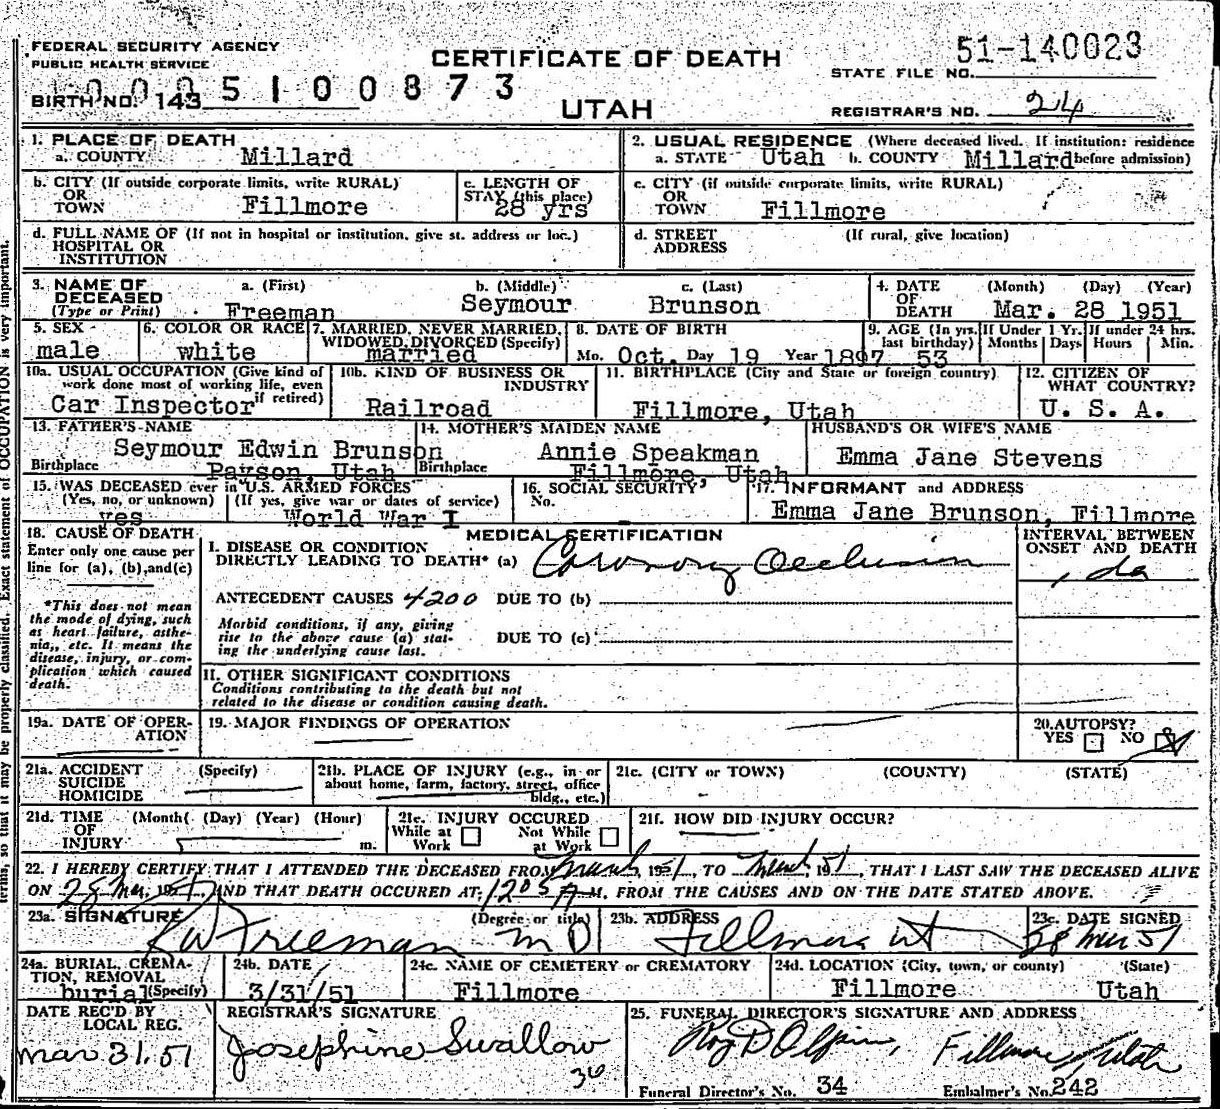 FEDERAL SECURITY AGENCY
PUBLIC HEALTH SERVICE
CERTIFICATE OF DEATH
UTAH
BIRTH NO. 143
5100873
STATE FILE NO. 51-140023
REGISTRAR'S NO. 24
1. PLACE OF DEATH
a. COUNTY Millard
2. USUAL RESIDENCE (Where deceased lived. If institution: residence before admission)
a. STATE Utah b. COUNTY Millard
b. CITY (If outside corporate limits, write RURAL) OR TOWN Fillmore
c. LENGTH OF STAY (this place) 28 yrs
c. CITY (if outside corporate limits, write RURAL) OR TOWN Fillmore
d. FULL NAME OF (If not in hospital or institution, give st. address or loc.) HOSPITAL OR INSTITUTION
d. STREET ADDRESS (If rural, give location)
3. NAME OF DECEASED (Type or Print)
a. (First) Freeman
b. (Middle) Seymour
c. (Last) Brunson
4. DATE OF DEATH (Month) (Day) (Year) Mar. 28 1951
5. SEX male
6. COLOR OR RACE white
7. MARRIED, NEVER MARRIED, WIDOWED, DIVORCED (Specify) married
8. DATE OF BIRTH Mo. Oct. Day 19 Year 1897
9. AGE (In yrs. last birthday) 53
If Under 1 Yr. Months Days
If under 24 hrs. Hours Min.
10a. USUAL OCCUPATION (Give kind of work done most of working life, even if retired) Car Inspector
10b. KIND OF BUSINESS OR INDUSTRY Railroad
11. BIRTHPLACE (City and State or foreign country) Fillmore, Utah
12. CITIZEN OF WHAT COUNTRY? U. S. A.
13. FATHER'S NAME Seymour Edwin Brunson
Birthplace Payson, Utah
14. MOTHER'S MAIDEN NAME Annie Speakman
Birthplace Fillmore, Utah
HUSBAND'S OR WIFE'S NAME Emma Jane Stevens
15. WAS DECEASED ever in U.S. ARMED FORCES
(Yes, no, or unknown) yes
(If yes, give war or dates of service) World War I
16. SOCIAL SECURITY No.
17. INFORMANT and ADDRESS Emma Jane Brunson, Fillmore
18. CAUSE OF DEATH
Enter only one cause per line for (a), (b), and (c)
*This does not mean the mode of dying, such as heart failure, asthenia, etc. It means the disease, injury, or complication which caused death.
MEDICAL CERTIFICATION
I. DISEASE OR CONDITION DIRECTLY LEADING TO DEATH* (a) Coronary Occlusion
INTERVAL BETWEEN ONSET AND DEATH
1 da
ANTECEDENT CAUSES 4200 DUE TO (b)
Morbid conditions, if any, giving rise to the above cause (a) stating the underlying cause last.
DUE TO (c)
II. OTHER SIGNIFICANT CONDITIONS
Conditions contributing to the death but not related to the disease or condition causing death.
19a. DATE OF OPERATION
19. MAJOR FINDINGS OF OPERATION
20. AUTOPSY? YES NO
21a. ACCIDENT SUICIDE HOMICIDE (Specify)
21b. PLACE OF INJURY (e.g., in or about home, farm, factory, street, office bldg., etc.)
21c. (CITY or TOWN) (COUNTY) (STATE)
21d. TIME OF INJURY (Month) (Day) (Year) (Hour) m.
21e. INJURY OCCURED While at Work Not While at Work
21f. HOW DID INJURY OCCUR?
22. I HEREBY CERTIFY THAT I ATTENDED THE DECEASED FROM March, 1951 TO March, 1951, THAT I LAST SAW THE DECEASED ALIVE
ON 28 Mar, 1951, AND THAT DEATH OCCURED AT 1205 A M. FROM THE CAUSES AND ON THE DATE STATED ABOVE.
23a. SIGNATURE (Degree or title) Freeman MD
23b. ADDRESS Fillmore Ut
23c. DATE SIGNED 28 Mar 51
24a. BURIAL, CREMATION, REMOVAL (Specify) burial
24b. DATE 3/31/51
24c. NAME OF CEMETERY or CREMATORY Fillmore
24d. LOCATION (City, town, or county) (State) Fillmore Utah
DATE REC'D BY LOCAL REG. Mar 31, 51
REGISTRAR'S SIGNATURE Josephine Swallow
36
25. FUNERAL DIRECTOR'S SIGNATURE AND ADDRESS Roy D Olpin, Fillmore, Utah
Funeral Director's No. 34 Embalmer's No. 242
terms, so that it may be properly classified. Exact statement of OCCUPATION is very important.